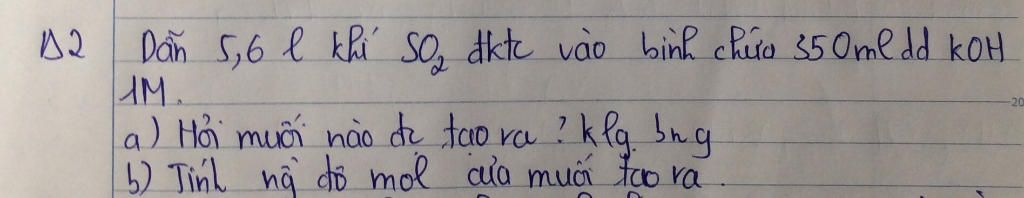 Δ2 Dẫn 5,6 l khí SO2 đktc vào bình chứa 350ml dd KOH
1M.
a) Hỏi muối nào đc tạo ra? klg bn g
b) Tính ng độ mol của muối tạo ra.
20